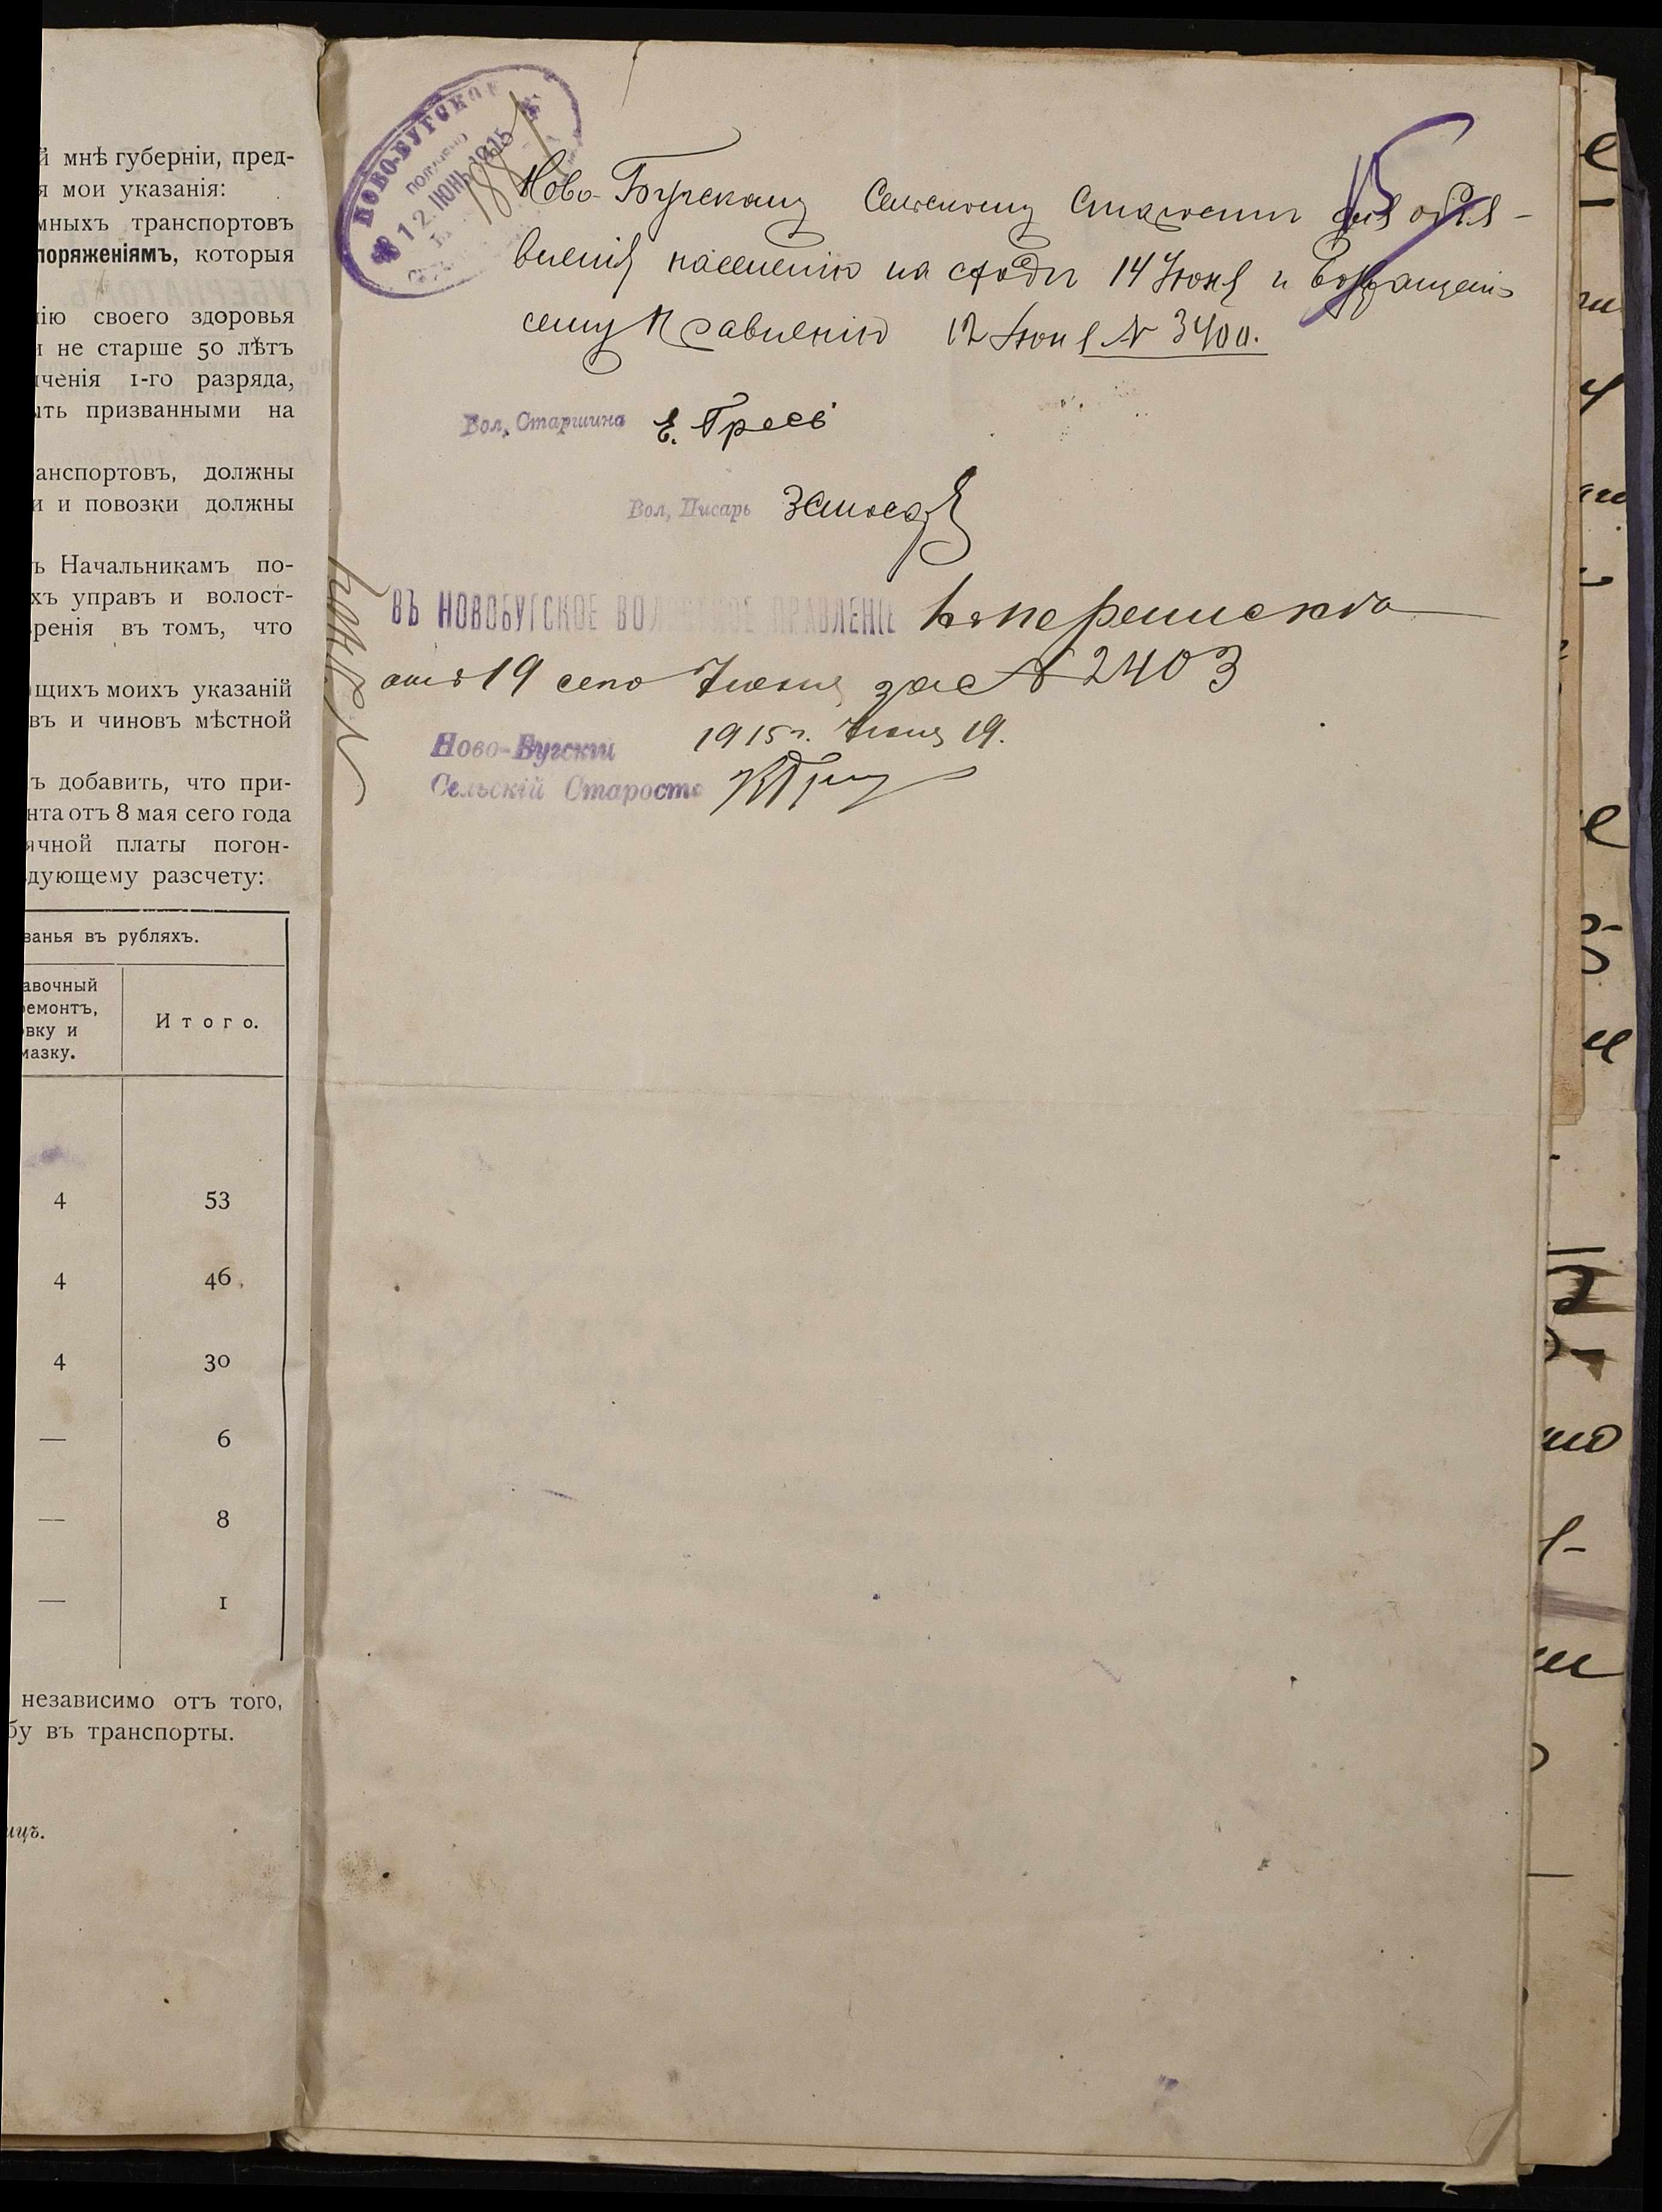 й мнѣ губерніи, пред-
я мои указанія:
мныхъ транспортовъ
поряженіямъ, которыя
нію своего здоровья
и не старше 50 лѣтъ
ченія 1-го разряда,
ыть призванными на
анспортовъ, должны
и и повозки должны
ъ Начальникамъ по-
хъ управъ и волост-
ренія въ томъ, что
щихъ моихъ указаній
въ и чиновъ мѣстной
ъ добавить, что при-
нта отъ 8 мая сего года
ячной платы погон-
дующему разсчету:
ванья въ рубляхъ.
авочный
емонтъ,
вку и
мазку.
Итого.
4 53
4 46
4 30
— 6
— 8
— 1
независимо отъ того,
бу въ транспорты.
ицъ.
НОВО-БУГСКОЕ
ПОЛУЧЕНО
12 ИЮНЬ 1915
Ново-Бугскому Сельскому Старостѣ для объя-
вленія населенію на сходѣ 14 Іюня и возвращенія
сему Правленію 12 Іюня № 3400.
Вол. Старшина Е. Греевъ
Вол. Писарь
ВЪ НОВОБУГСКОЕ ВОЛОСТНОЕ ПРАВЛЕНІЕ
отъ 19 сего Іюня за № 2403
1915 г. Іюня 19.
Ново-Бугскій
Сельскій Староста